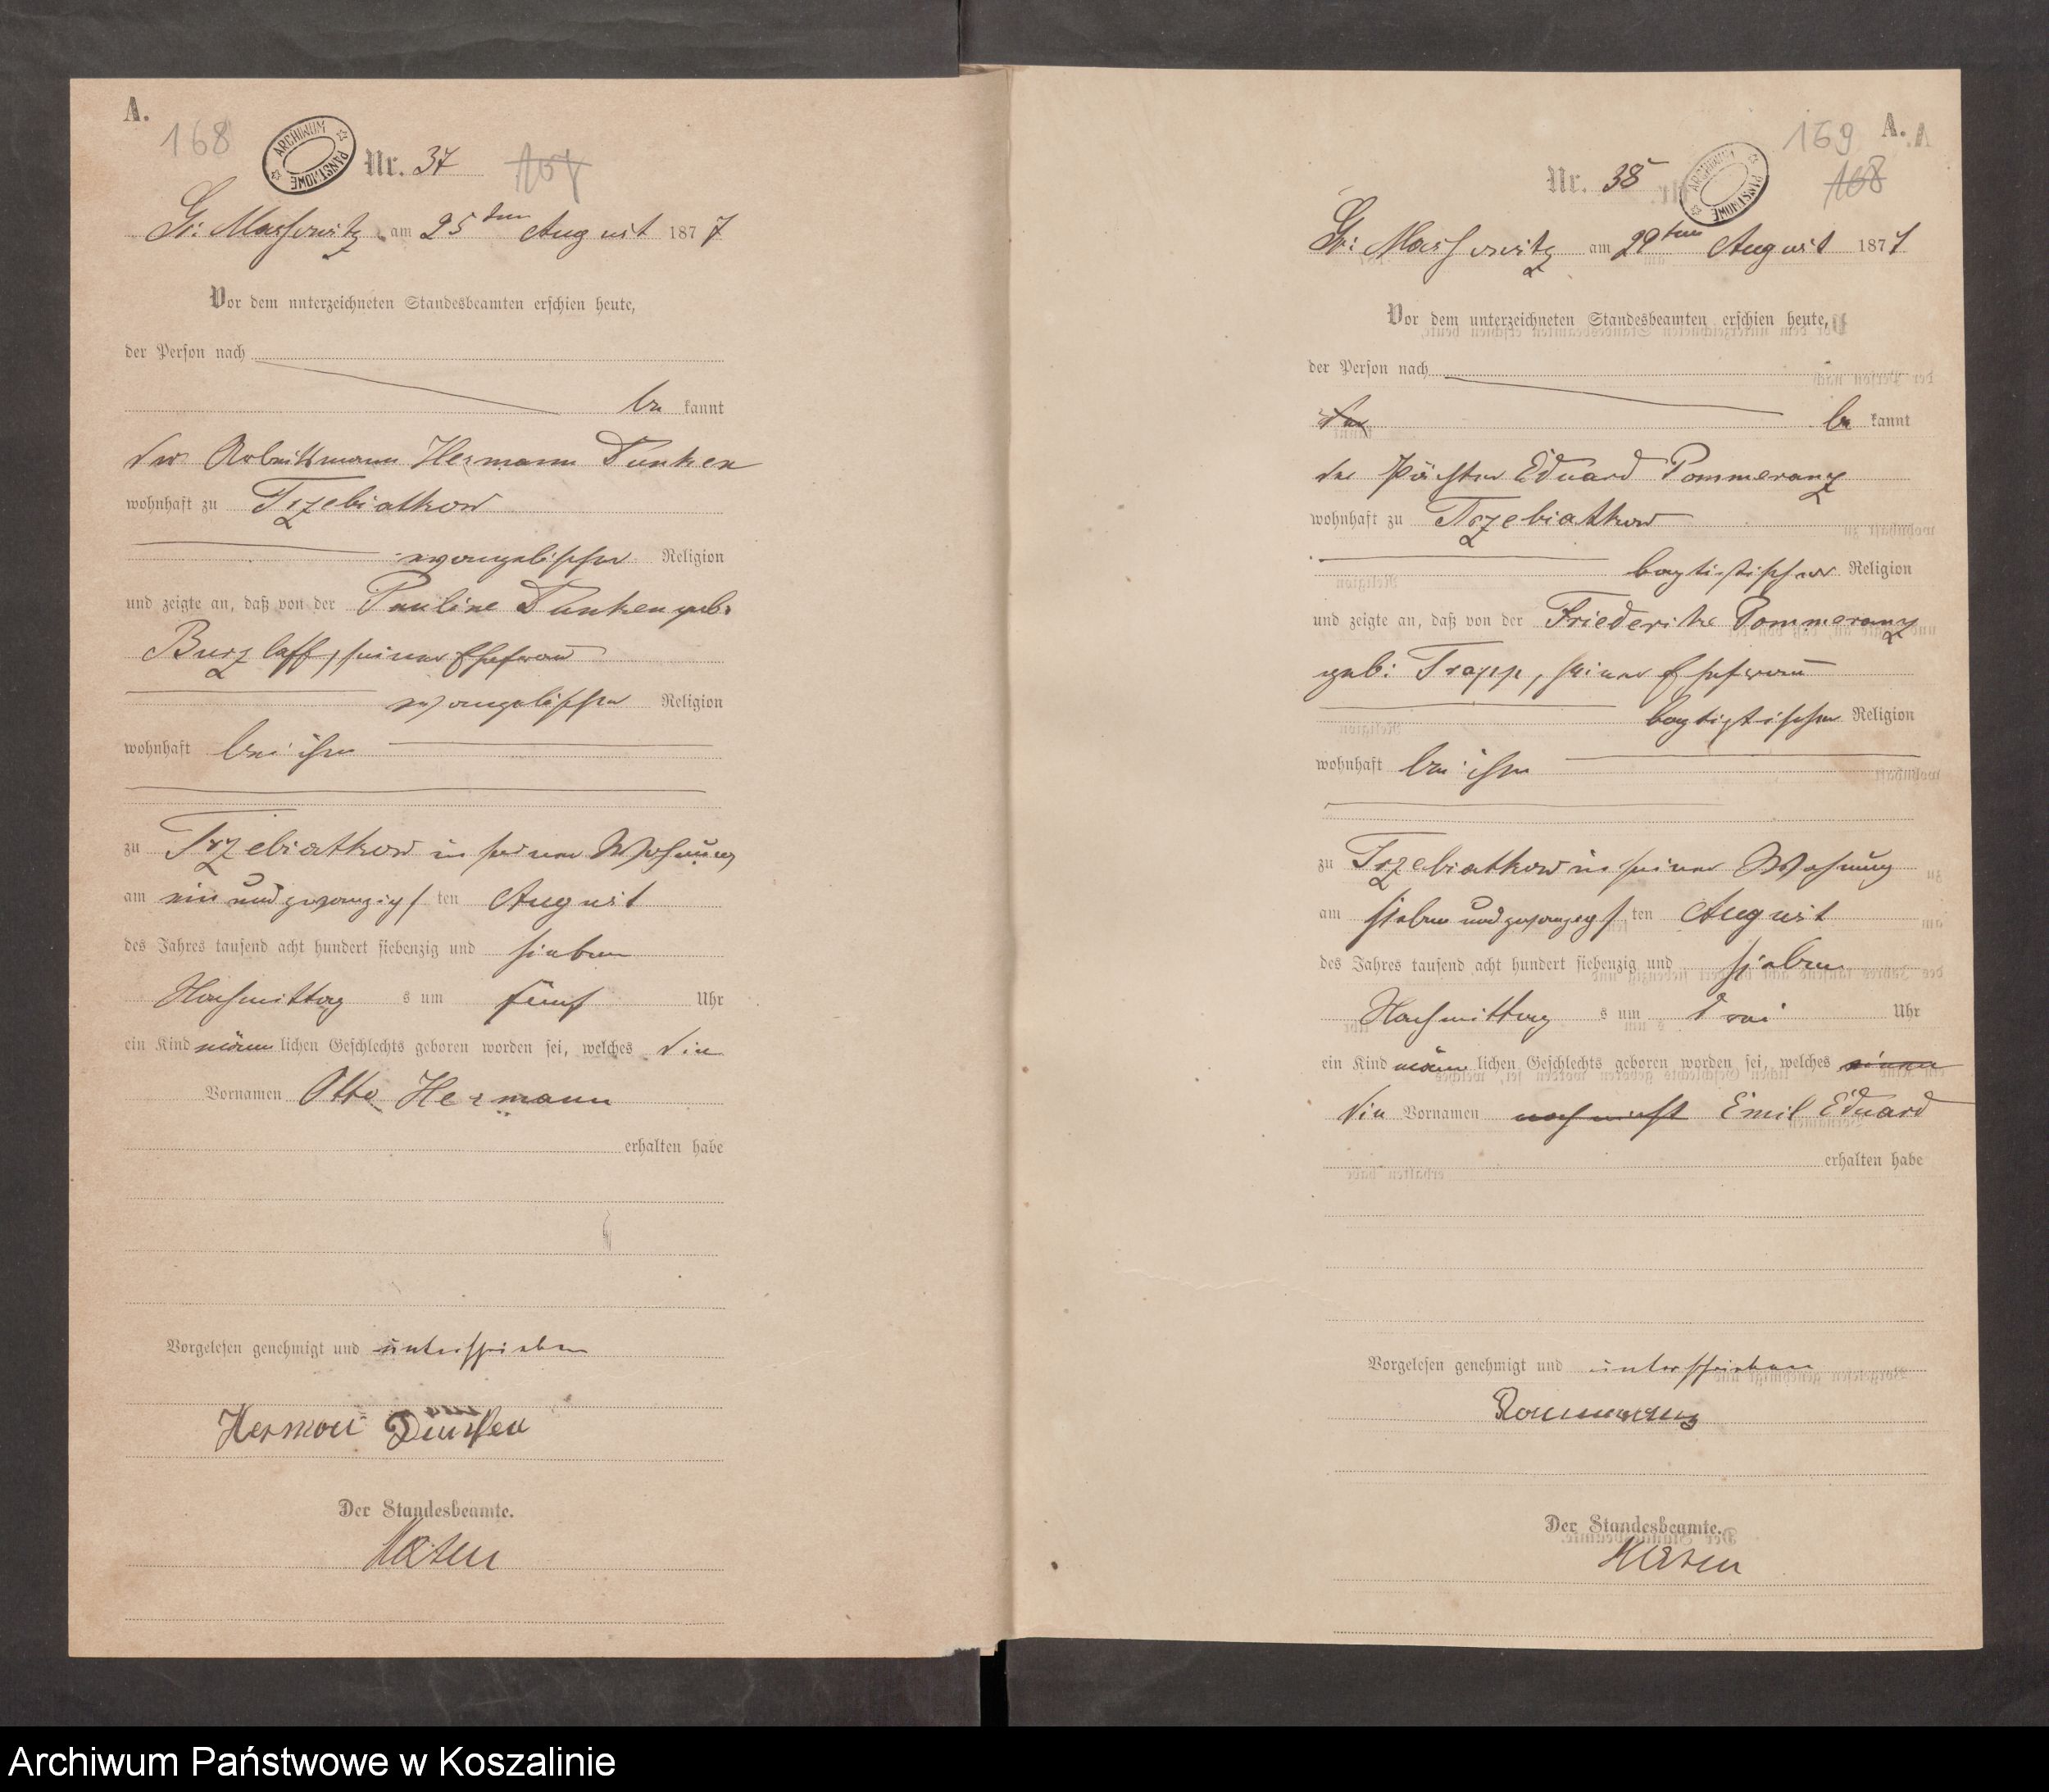 A.
168
ARCHIWUM PAŃSTWOWE
Nr. 37
Gr: Massowitz am 25ten August 1877
Vor dem unterzeichneten Standesbeamten erschien heute,
der Person nach
be kannt
der Arbeitsmann Hermann Dunken
wohnhaft zu Trzebiatkow
evangelischer Religion
und zeigte an, daß von der Pauline Dunken geb:
Burzlaff, seiner Ehefrau
evangelischer Religion
wohnhaft bei ihm
zu Trzebiatkow in seiner Wohnung
am ein und zwanzigs ten August
des Jahres tausend acht hundert siebenzig und sieben
Nachmittag s um fünf Uhr
ein Kind männ lichen Geschlechts geboren worden sei, welches die
Vornamen Otto Hermann
erhalten habe
Vorgelesen genehmigt und unterschrieben
Herman Dunken
Der Standesbeamte.
A.
169
168
ARCHIWUM PAŃSTWOWE
Nr. 38
Gr: Massowitz am 29ten August 1877
Vor dem unterzeichneten Standesbeamten erschien heute,
der Person nach
der be kannt
der Pächter Eduard Pommeranz
wohnhaft zu Trzebiatkow
baptistischer Religion
und zeigte an, daß von der Friederike Pommeranz
geb: Trapp, seiner Ehefrau
baptistischer Religion
wohnhaft bei ihm
zu Trzebiatkow in seiner Wohnung
am sieben und zwanzigs ten August
des Jahres tausend acht hundert siebenzig und sieben
Nachmittag s um drei Uhr
ein Kind männ lichen Geschlechts geboren worden sei, welches einen
die Vornamen noch nicht Emil Eduard
erhalten habe
Vorgelesen genehmigt und unterschrieben
Pommeranz
Der Standesbeamte.
Archiwum Państwowe w Koszalinie